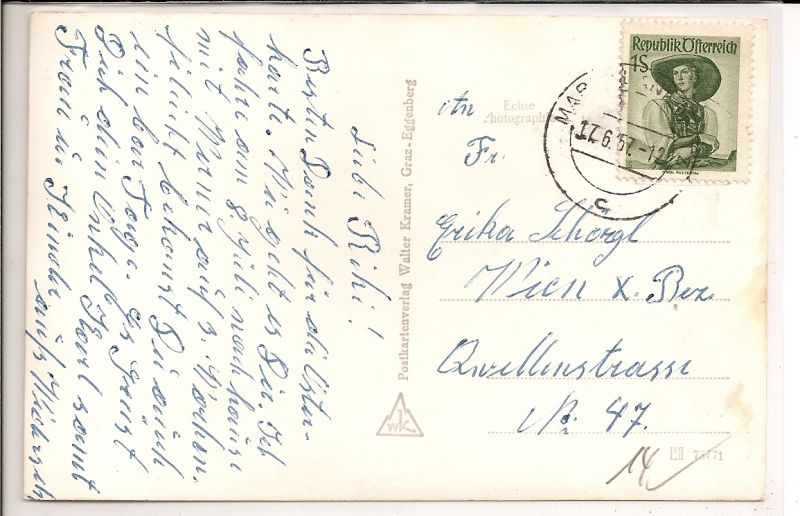 Liebe Rihi!
Besten Dank für die Oster-
karte. Wie geht es Dir. Ich
fahre am 8. Juli nach hause
mit Werner auf 3. Wochen.
filleicht bekomst Du auch
ein bar Tage. Es Grüst
Dich dein Onkel Karl samt
Frau u. Kinder
auf Widerseh
Postkartenverlag Walter Kramer, Graz-Eggenberg
wk
Echte
Photographie
Republik Österreich
1S
MAR
17.6.57.-12
C
An
Fr.
Erika Schörgl
Wien X. Bez.
Quellenstrasse
Nr. 47.
14
73171